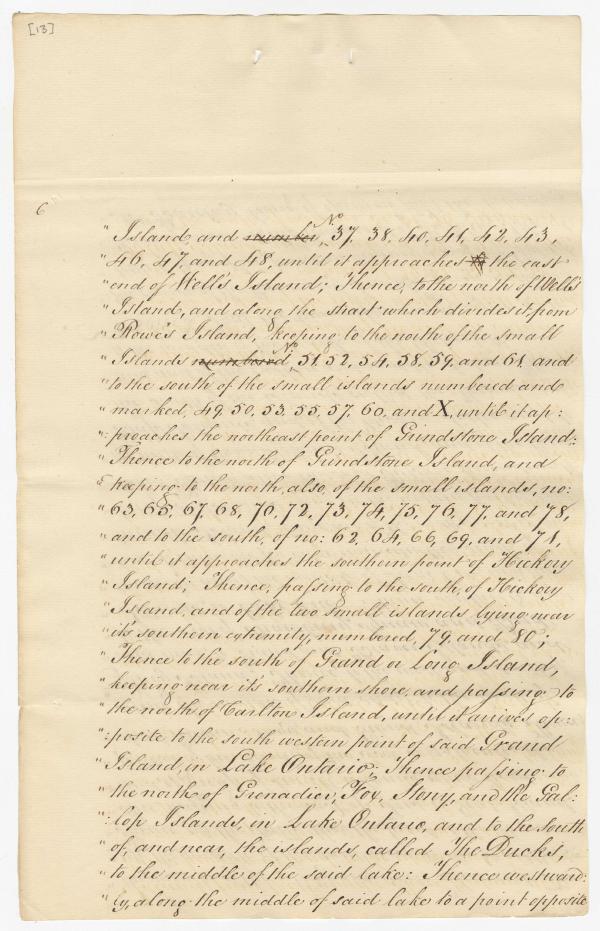 [13]
6
" Island, and number, No. 37, 38, 40, 41, 42, 43,
" 46, 47, and 48, until it approaches the east
" end of Well's Island; Thence, to the north of Well's
" Island, and along the strait which divides it from
" Rowe's Island, keeping to the north of the small
" Islands numbered, No. 51, 52, 54, 58, 59, and 61, and
" to the south of the small islands numbered and
" marked, 49, 50, 53, 55, 57, 60, and X, until it ap:
":proaches the northeast point of Grindstone Island:
" Thence to the north of Grindstone Island, and
" keeping to the north, also, of the small islands, no:
" 63, 65, 67, 68, 70, 72, 73, 74, 75, 76, 77, and 78,
" and to the south, of no: 62, 64, 66, 69, and 71,
" until it approaches the southern point of Hickory
" Island; Thence, passing to the south, of Hickory
" Island, and of the two small islands lying near
" it's southern extremity, numbered, 79, and 80;
" Thence to the south of Grand or Long Island,
" keeping near it's southern shore, and passing to
" the north of Carlton Island, until it arrives op:
":posite to the south western point of said Grand
" Island, in Lake Ontario; Thence passing to
" the north of Grenadier, Fox, Stony, and the Gal:
":lop Islands, in Lake Ontario, and to the South
" of, and near, the islands, called The Ducks,
" to the middle of the said lake: Thence westward:
" ly, along the middle of said lake to a point opposite